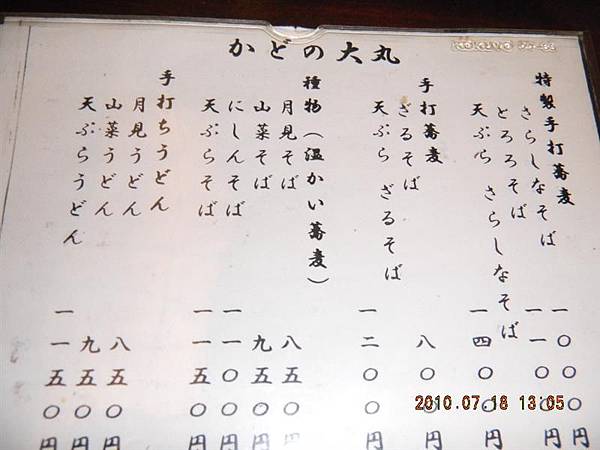 かどの大丸
KOKUYO
特製手打蕎麦
さらしなそば 一〇〇〇円
とろろそば 一一〇〇円
天ぷら さらしなそば 一四〇〇円
手打蕎麦
ざるそば 八〇〇円
天ぷら ざるそば 一二〇〇円
種物(温かい蕎麦)
月見そば 八五〇円
山菜そば 九五〇円
にしんそば 一一〇〇円
天ぷらそば 一一五〇円
手打ちうどん
月見うどん 八五〇円
山菜うどん 九五〇円
天ぷらうどん 一一五〇円
2010.07.18 13:05